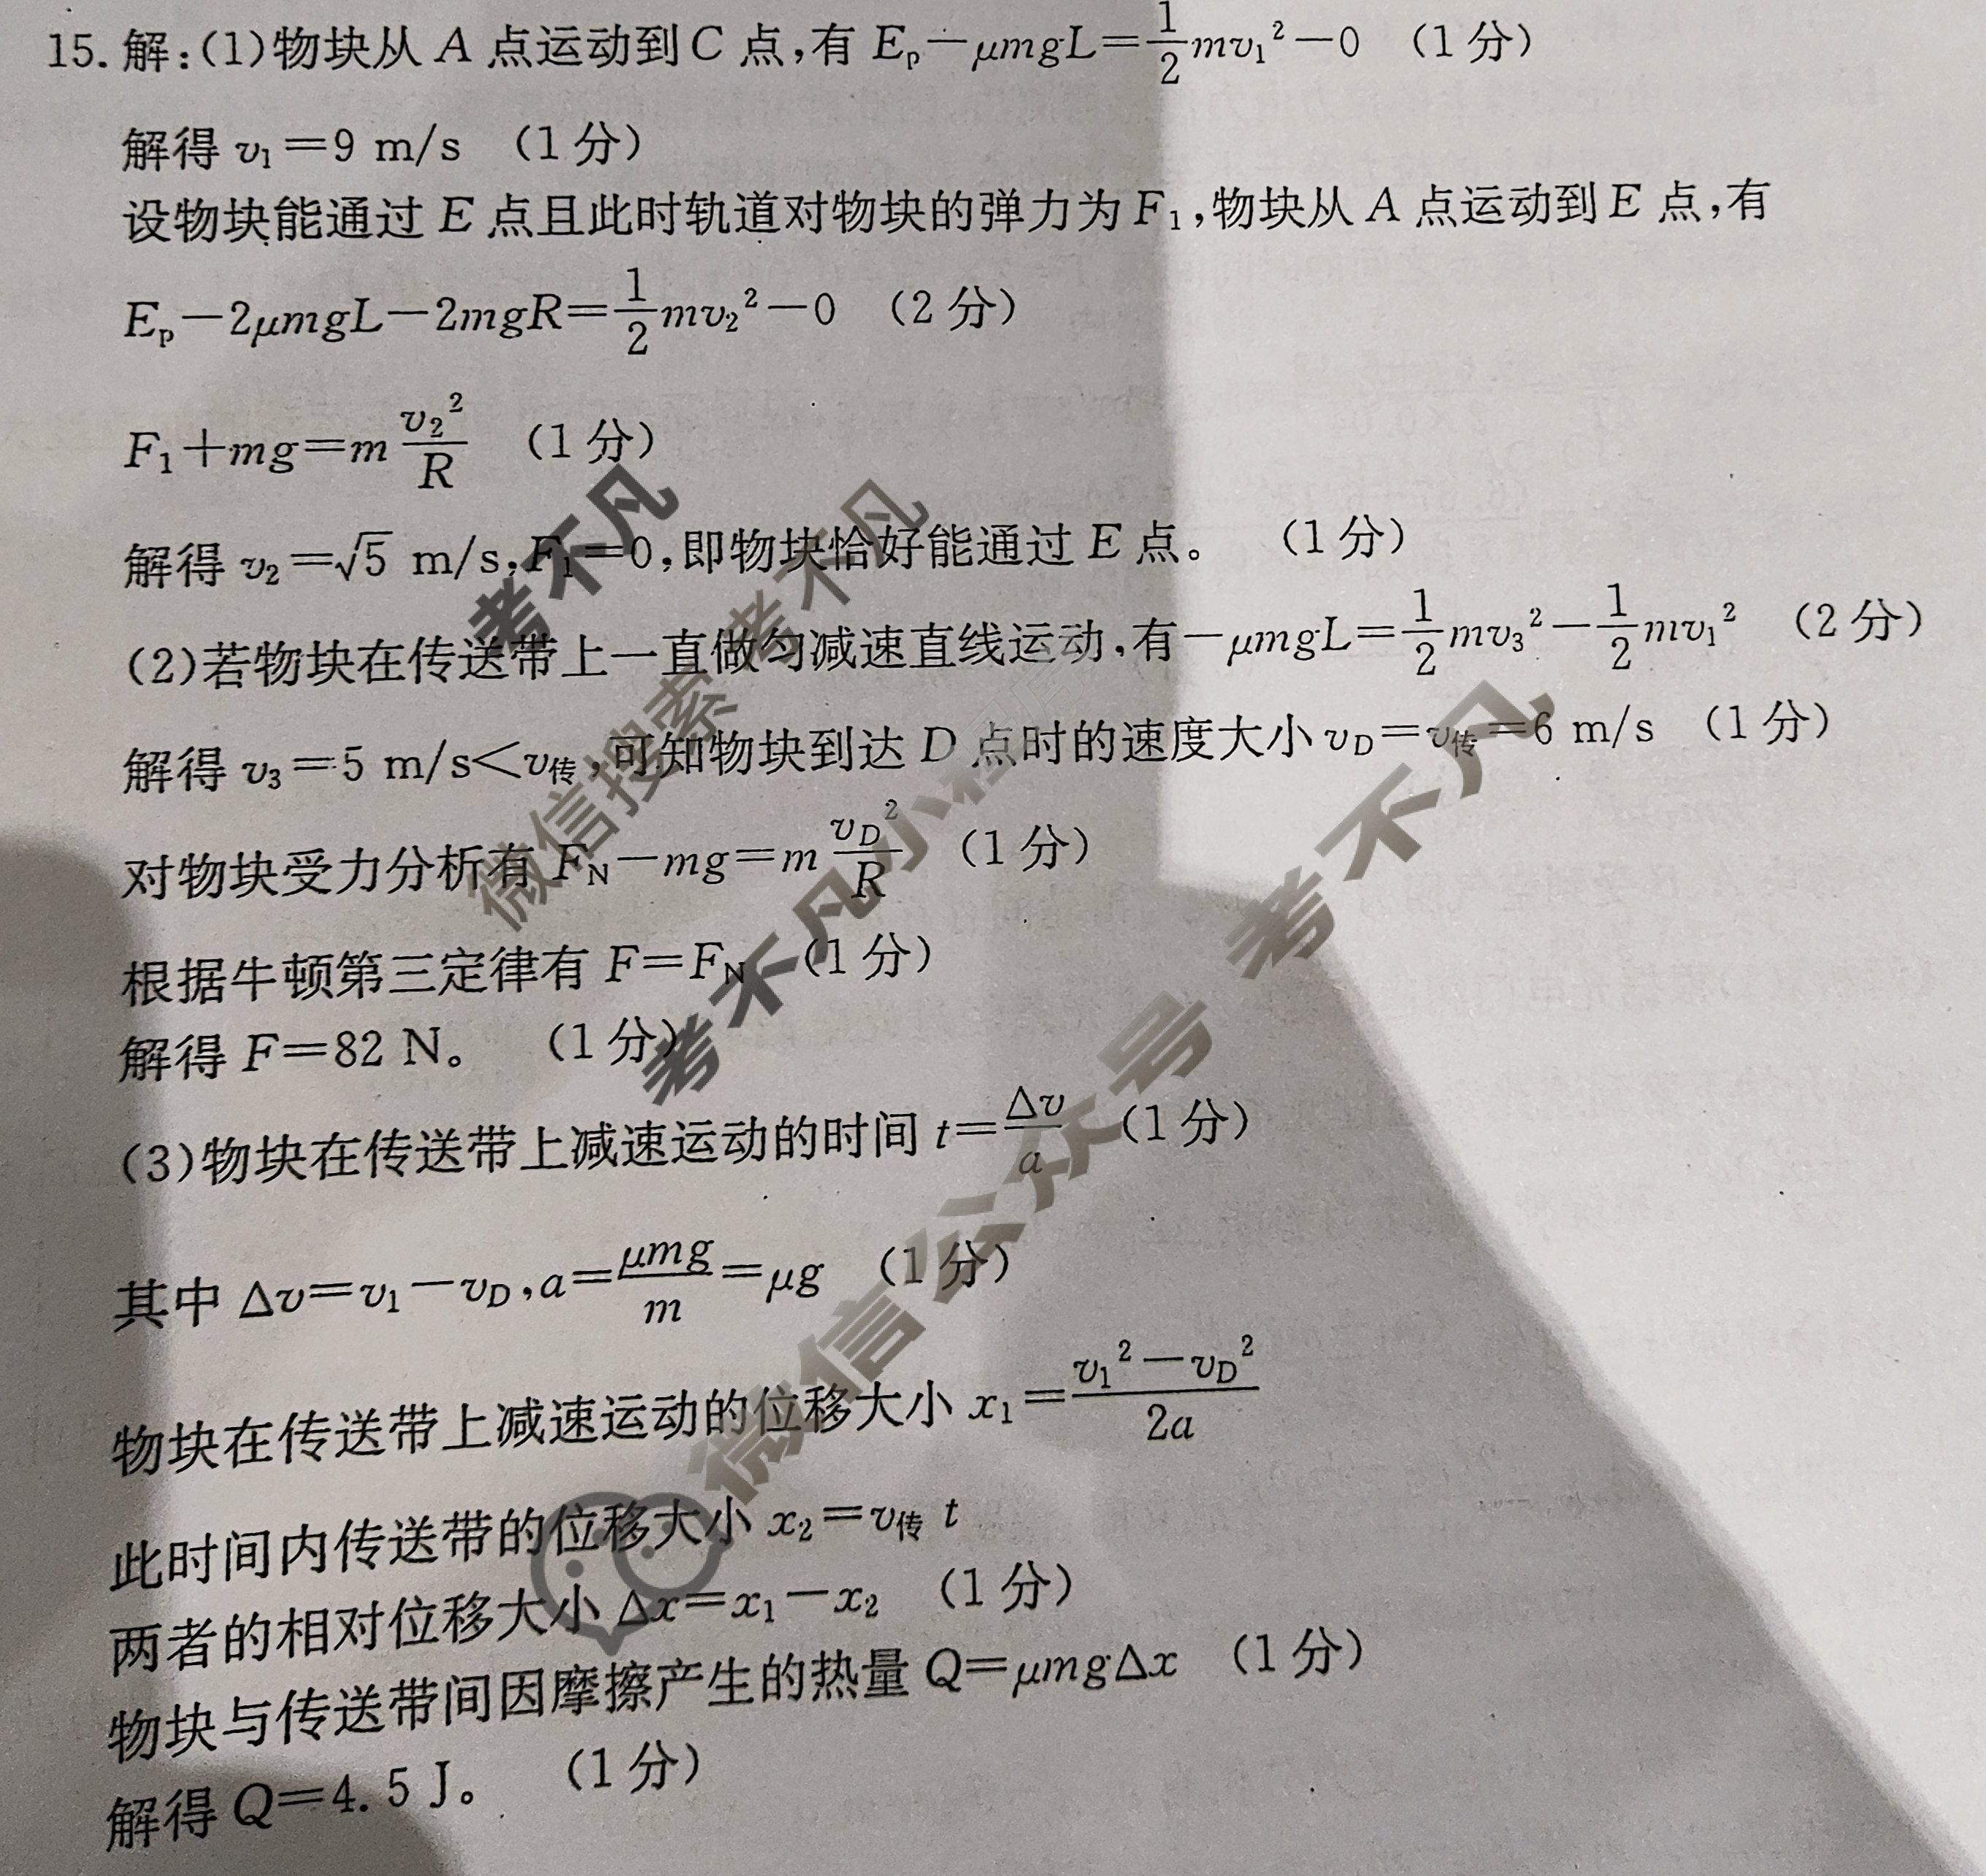 15. 解:(1)物块从 A 点运动到 C 点,有 Eₚ－μmgL＝1/2 mv₁²－0 (1分)
解得 v₁＝9 m/s (1分)
设物块能通过 E 点且此时轨道对物块的弹力为 F₁,物块从 A 点运动到 E 点,有
Eₚ－2μmgL－2mgR＝1/2 mv₂²－0 (2分)
F₁＋mg＝m v₂²/R (1分)
解得 v₂＝√5 m/s,F₁＝0,即物块恰好能通过 E 点。 (1分)
(2)若物块在传送带上一直做匀减速直线运动,有－μmgL＝1/2 mv₃²－1/2 mv₁² (2分)
解得 v₃＝5 m/s＜v传,可知物块到达 D 点时的速度大小 v_D＝v传＝6 m/s (1分)
对物块受力分析有 F_N－mg＝m v_D²/R (1分)
根据牛顿第三定律有 F＝F_N (1分)
解得 F＝82 N。 (1分)
(3)物块在传送带上减速运动的时间 t＝Δv/a (1分)
其中 Δv＝v₁－v_D,a＝μmg/m＝μg (1分)
物块在传送带上减速运动的位移大小 x₁＝(v₁²－v_D²)/2a
此时间内传送带的位移大小 x₂＝v传 t
两者的相对位移大小 Δx＝x₁－x₂ (1分)
物块与传送带间因摩擦产生的热量 Q＝μmgΔx (1分)
解得 Q＝4.5 J。 (1分)
考不凡
微信搜索 考不凡
考不凡小程序
微信公众号 考不凡